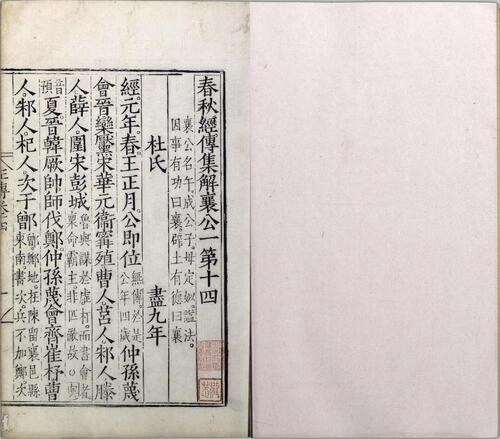 春秋經傳集解襄公一第十四
襄公名午成公子母定姒謚法
因事有功曰襄辟土有德曰襄
杜氏 盡九年
經元年春王正月公即位無傳於是公年四歲仲孫蔑
會晉欒黶宋華元衞寗殖曹人莒人邾人滕
人薛人圍宋彭城
夏晉韓厥帥師伐鄭仲孫蔑會齊崔杼曹
人邾人杞人次于鄫鄫鄭地在陳留襄邑縣東南書次兵不加鄭次